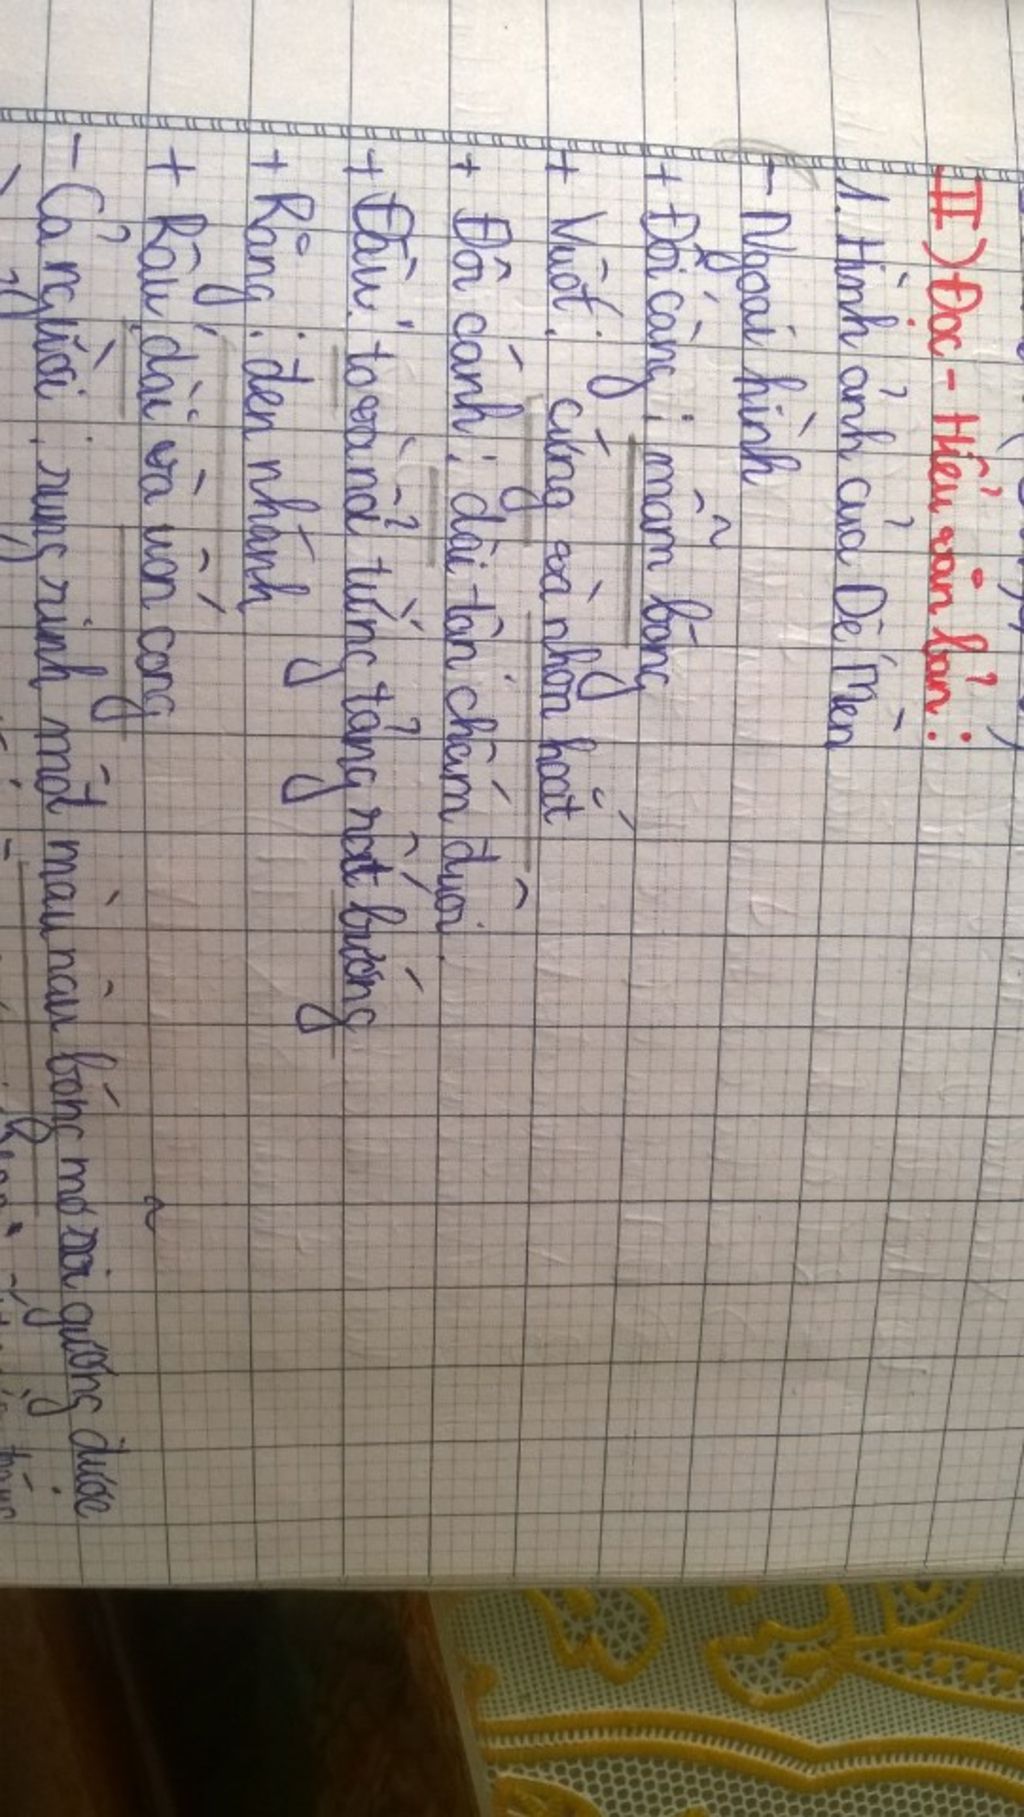 II) Đọc - Hiểu văn bản:
1. Hình ảnh của Dế Mèn
- Ngoại hình
+ Đôi càng: mẫm bóng
+ Vuốt: cứng và nhọn hoắt
+ Đôi cánh: dài tận chấm đuôi.
+ Đầu: to và nổi từng tảng rất bướng
+ Răng: đen nhánh
+ Râu: dài và uốn cong
- Cả người: rung rinh một màu nâu bóng mỡ soi gương được